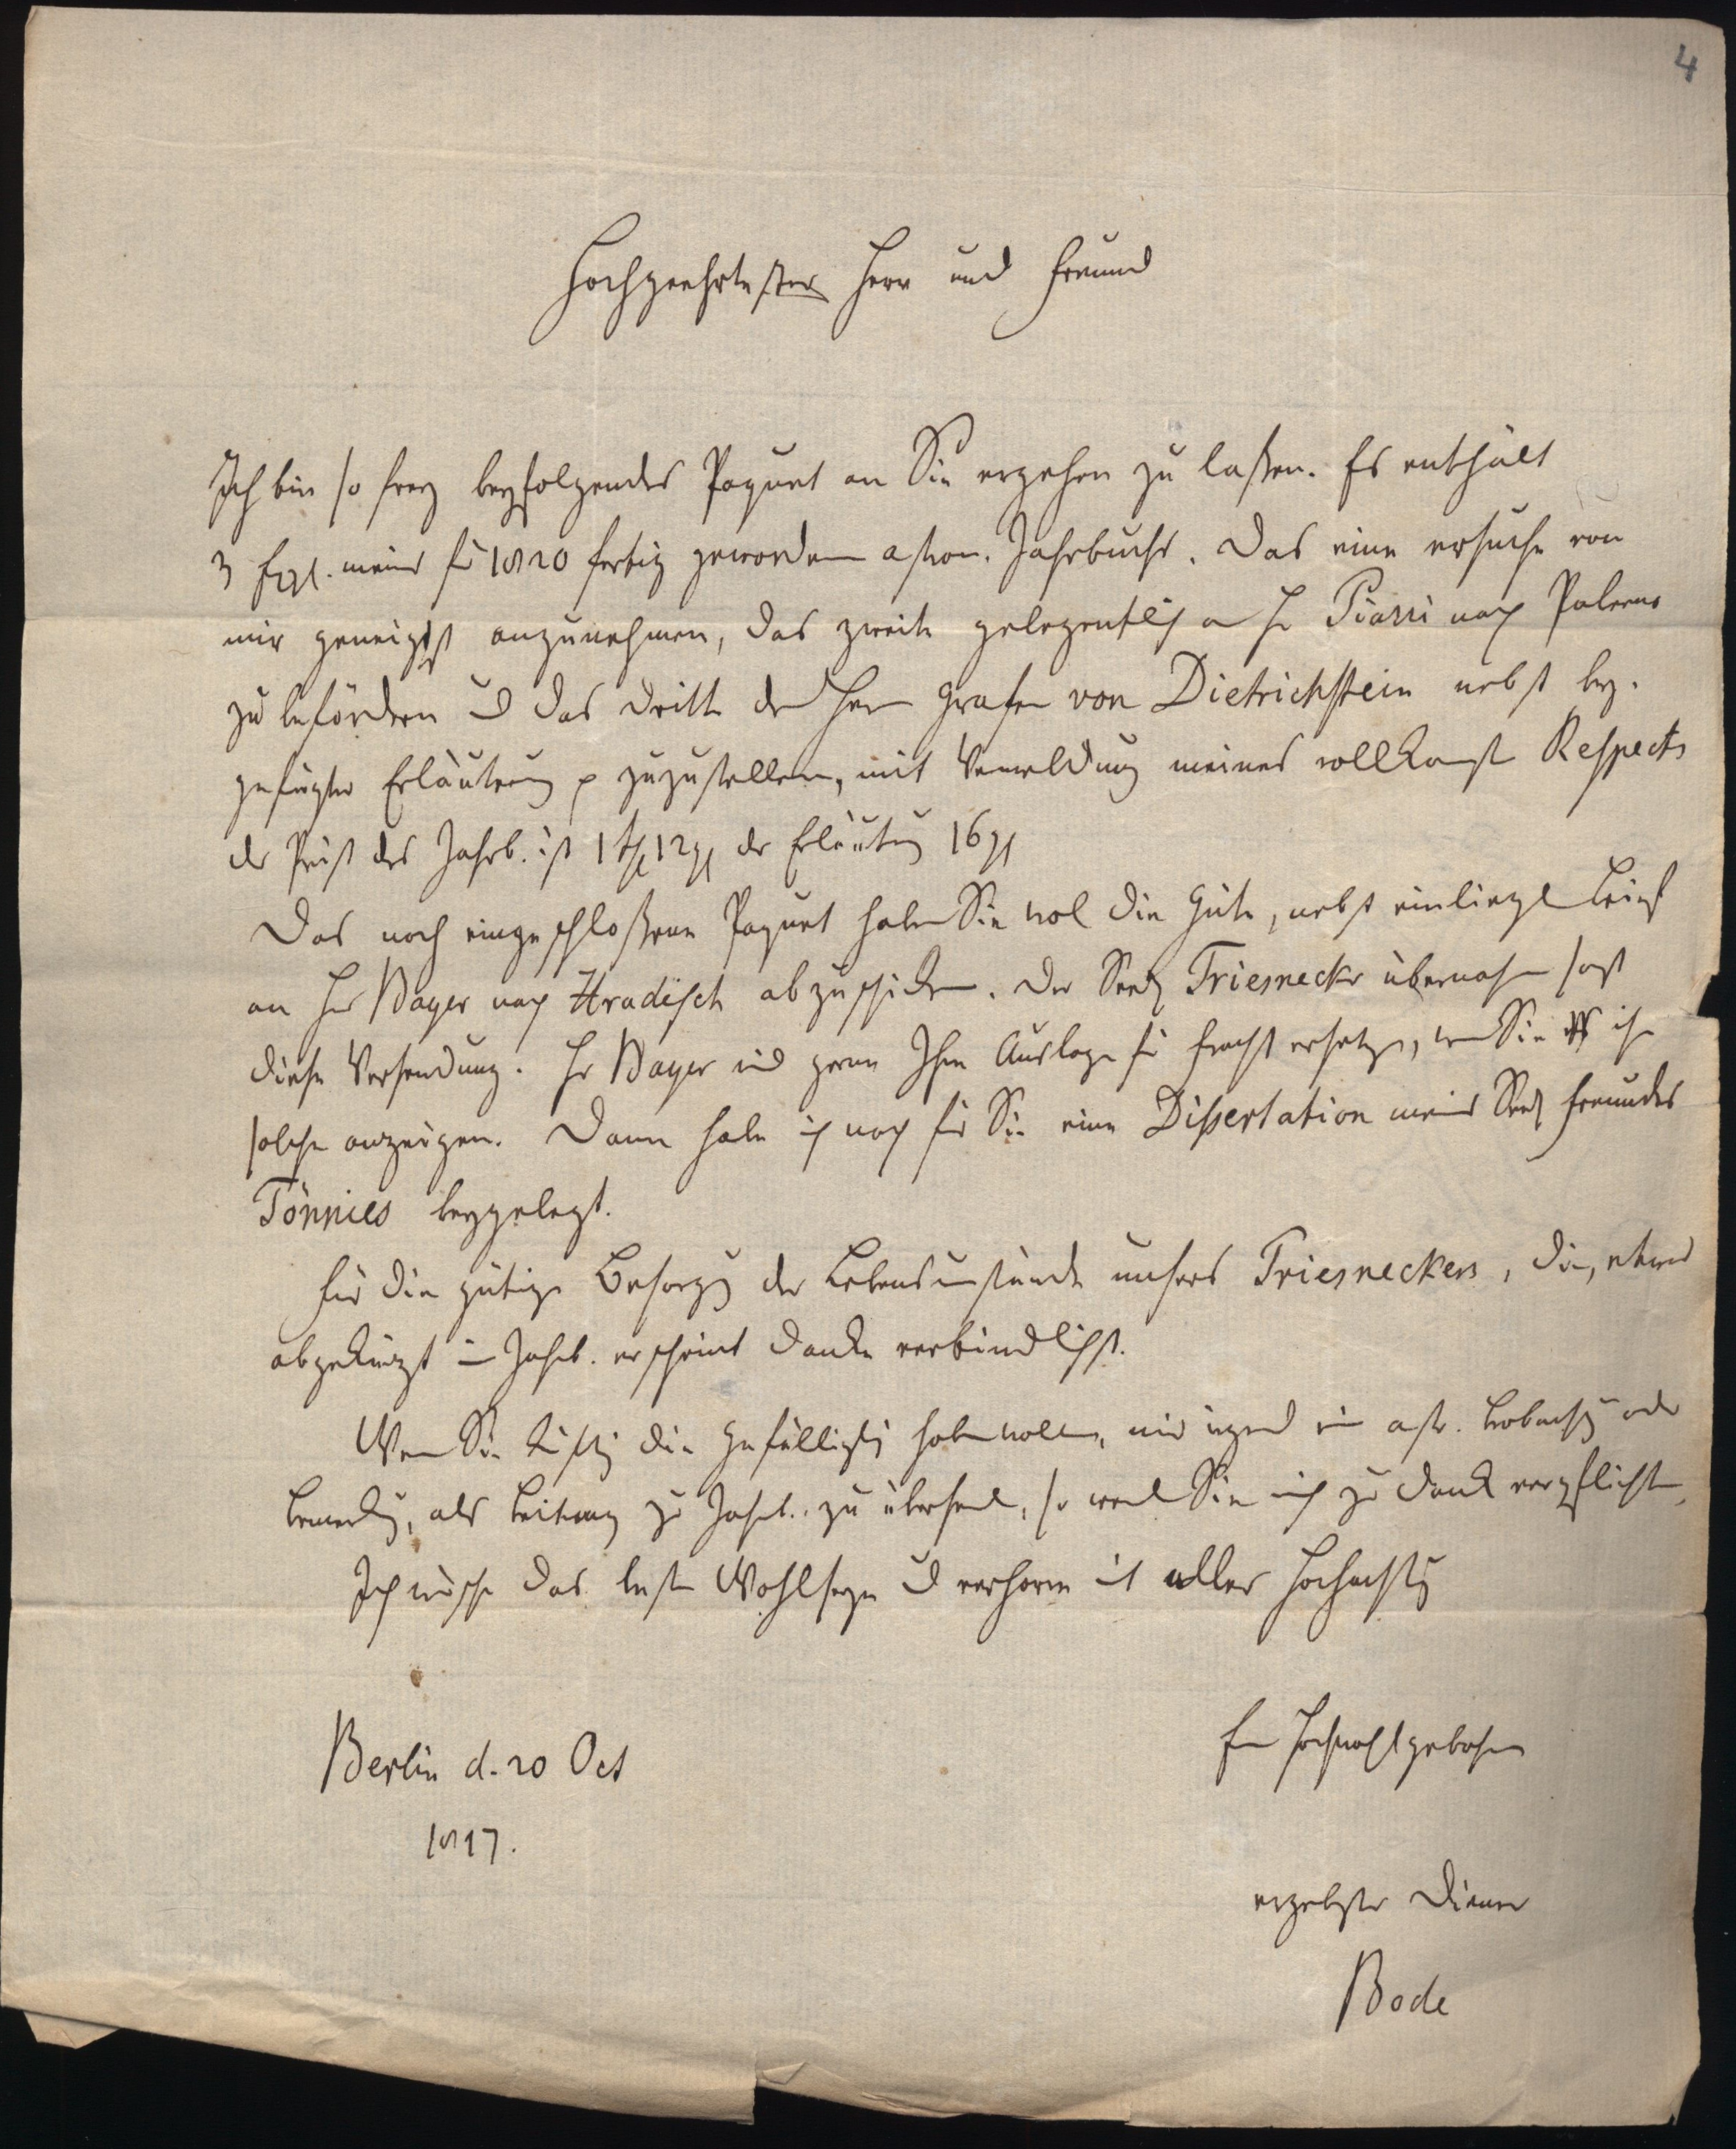 4
Hochgeehrtester Herr und Freund
Ich bin so frey beyfolgendes Paquet an Sie ergehen zu laßen. Es enthält
3 Expl. meines für 1820 fertig gewordenen astron. Jahrbuchs. Das eine ersuche von
mir geneigtst anzunehmen, das zweite gelegentlich an H Piazzi nach Palermo
zu befördern u das dritte dem Herrn Grafen von Dietrichstein nebst bey-
gefügter Erläuterung zuzustellen, mit Vermeldung meines vollkomst Respects
der Preiß des Jahrb. ist 1 rthl 12 gl der Erläuterung 16 gl
Das noch eingeschloßene Paquet haben Sie wol die Güte, nebst einliegl Brief
an Hr Bayer nach Hradisch abzuschicken. Der Seel Triesnecker übernahm sonst
diese Versendung. Hr Bayer wird gern Ihre Auslage für Fracht ersetzen, wen Sie ihm
solche anzeigen. Dann habe ich noch für Sie eine Dißertation meines Seel Freundes
Tönnies beygelegt.
Für die gütige Besorgg der Lebensumstände unsers Triesneckers, die, etwas
abgekürzt im Jahrb. erscheint danke verbindlichst.
Wen Sie künftig die Gefälligkt haben wollen, mir irgend ein astr. Beobachtg oder
Bemerkg, als Beitrag zum Jahrb. zu übersend, so werd Sie mich zu Dank verpflichten,
Ich wünsche das beste Wohlseyn u verharre mit aller Hochachtg
Berlin d. 20 Oct
1817.
Ew Hochwohlgebohren
ergebster Diener
Bode